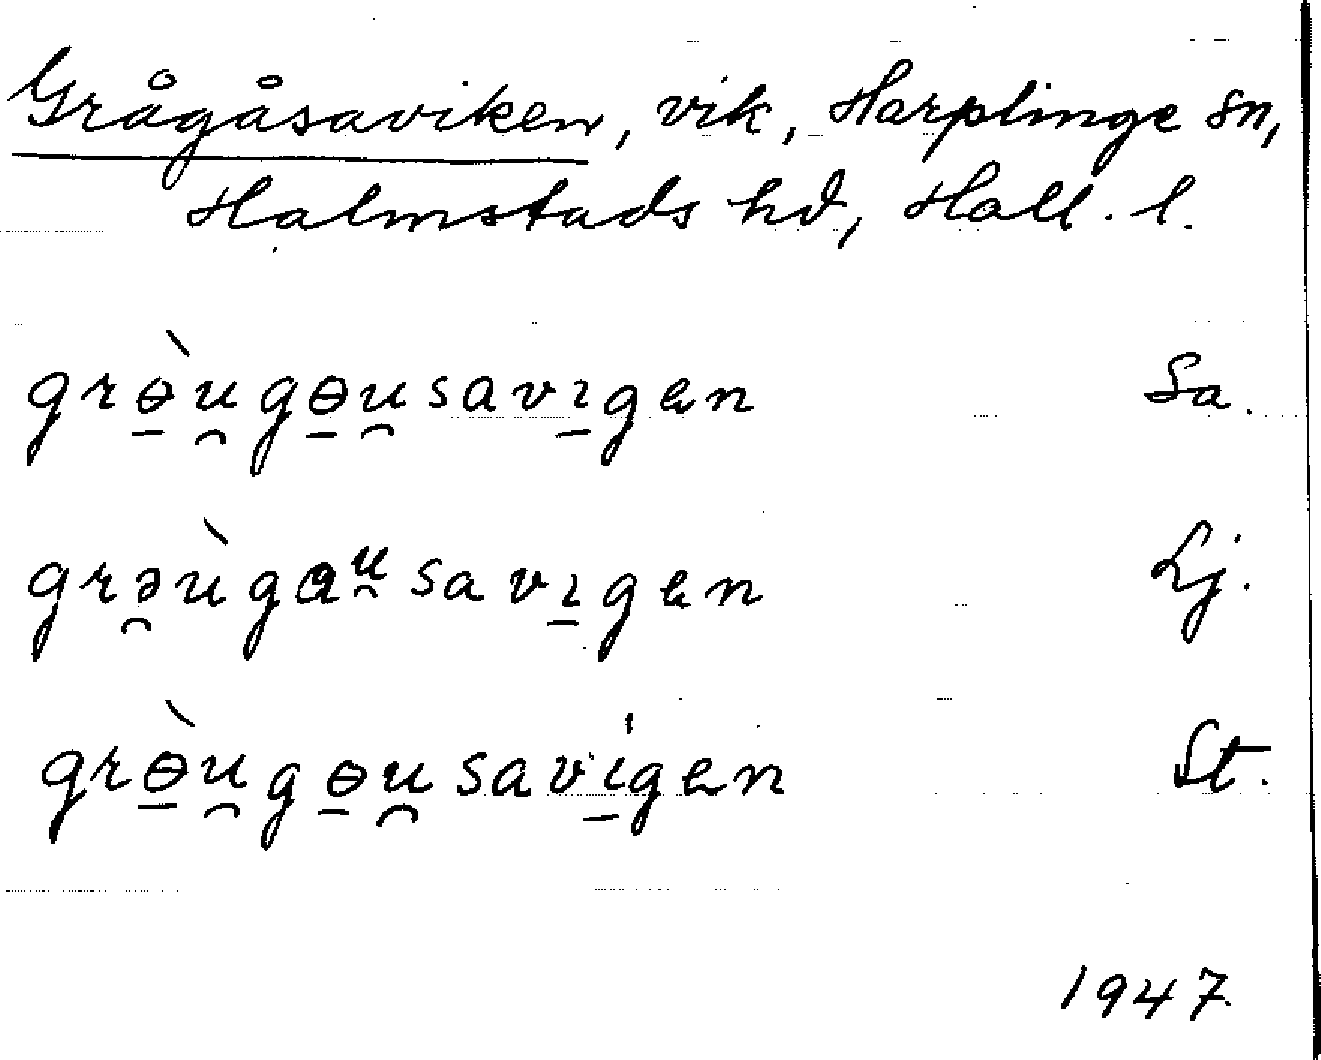 Grågåsaviken, vik, Harplinge sn,
Halmstads hd, Hall. l.
grɵ̱̀u̯gɵ̱u̯savı̱gen Sa.
grə̯ùgaᵘ̯savı̱gen Lj.
grɵ̱̀u̯gɵ̱u̯saví̱gen St.
1947.